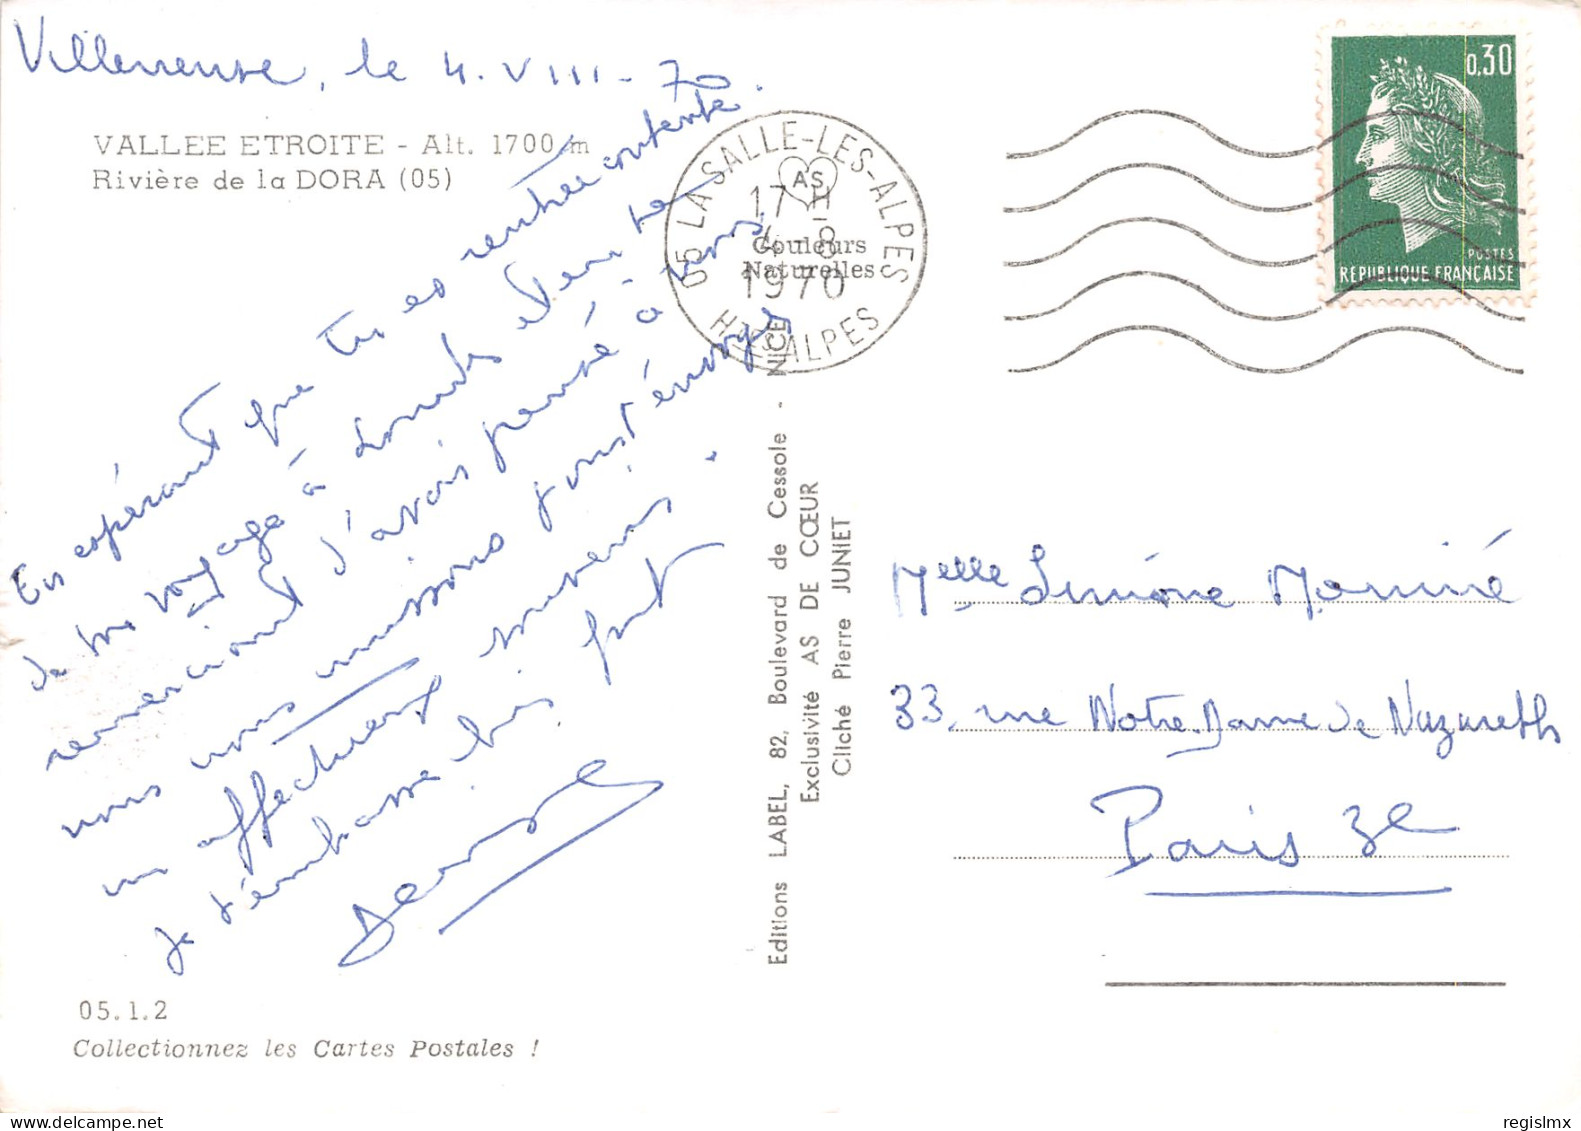 Villeneuve, le 4. VIII - 70.
VALLEE ETROITE - Alt. 1700 m
Rivière de la DORA (05)
En espérant que tu es rentrée contente
de ton voyage à Lourdes et en te
remerciant d'avoir pensé à nous,
nous nous unissons pour t'envoyer
un affectueux souvenir.
Je t'embrasse bien fort.
Denise
05.1.2
Collectionnez les Cartes Postales !
05 LA SALLE-LES-ALPES
HTES ALPES
17 H
4 - 8
1970
AS
Couleurs
Naturelles
Editions LABEL, 82, Boulevard de Cessole - NICE
Exclusivité AS DE CŒUR
Cliché Pierre JUNIET
0,30
POSTES
REPUBLIQUE FRANÇAISE
Melle Simone
33, rue Notre-Dame de Nazareth
Paris 3e
regislmx